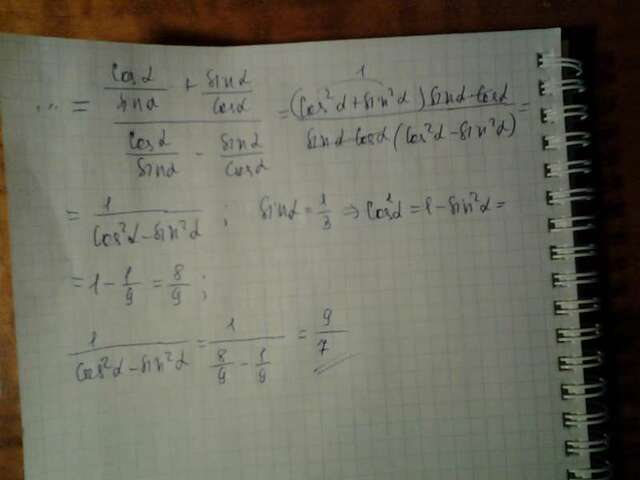 ... = (cosα/sinα + sinα/cosα)/(cosα/sinα - sinα/cosα) = (cos²α + sin²α) sinα·cosα/(sinα·cosα (cos²α - sin²α)) =
1
= 1/(cos²α - sin²α) ; sinα = 1/3 ⇒ cos²α = 1 - sin²α =
= 1 - 1/9 = 8/9 ;
1/(cos²α - sin²α) = 1/(8/9 - 1/9) = 9/7